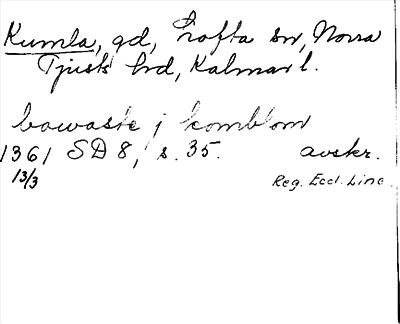 Kumla, gd, Lofta sn, Norra
Tjusts hd, Kalmar l.
bowaste j komblom
1361 SD 8, s. 35. avskr.
13/3 Reg. Eccl. Linc.